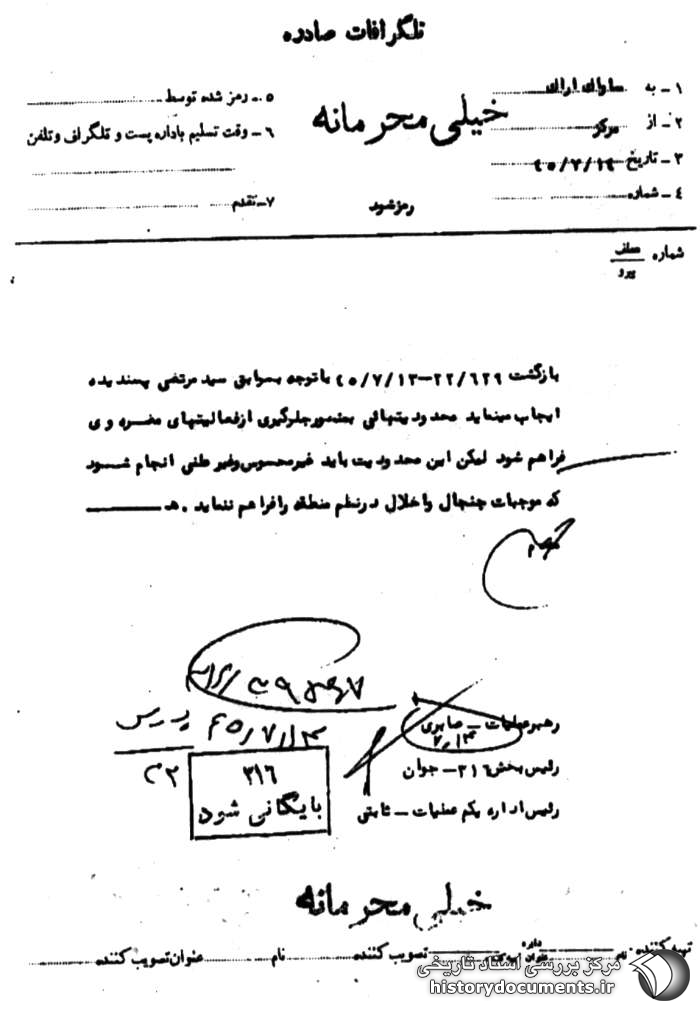 تلگرافات صادره
۱ - به ساواک اراک
۲ - از مرکز
۳ - تاریخ ۴۵/۷/۱۴
۴ - شماره
خیلی محرمانه
رمز شود
۵ - رمز شده توسط
۶ - وقت تسلیم باداره پست و تلگراف و تلفن
۷ - تقدم
شماره عطف
پیرو
بازگشت ۲۲/۶۲۹-۴۵/۷/۱۳ با توجه بسوابق سید مرتضی پسندیده
ایجاب مینماید محدودیتهائی بمنظور جلوگیری از فعالیتهای مضره وی
فراهم شود لیکن این محدودیت باید غیرمحسوس و غیر علنی انجام شود
که موجبات جنجال و اخلال در نظم منطقه را فراهم ننماید . هـ
رهبر عملیات - صابری
۷/۱۳
رئیس بخش ۳۱۶ - جوان
رئیس اداره یکم عملیات - ثابتی
۴۵/۷/۱۳
۳۱۶
بایگانی شود
خیلی محرمانه
تهیه کننده نام
تصویب کننده نام
عنوان تصویب کننده
مرکز بررسی اسناد تاریخی
historydocuments.ir